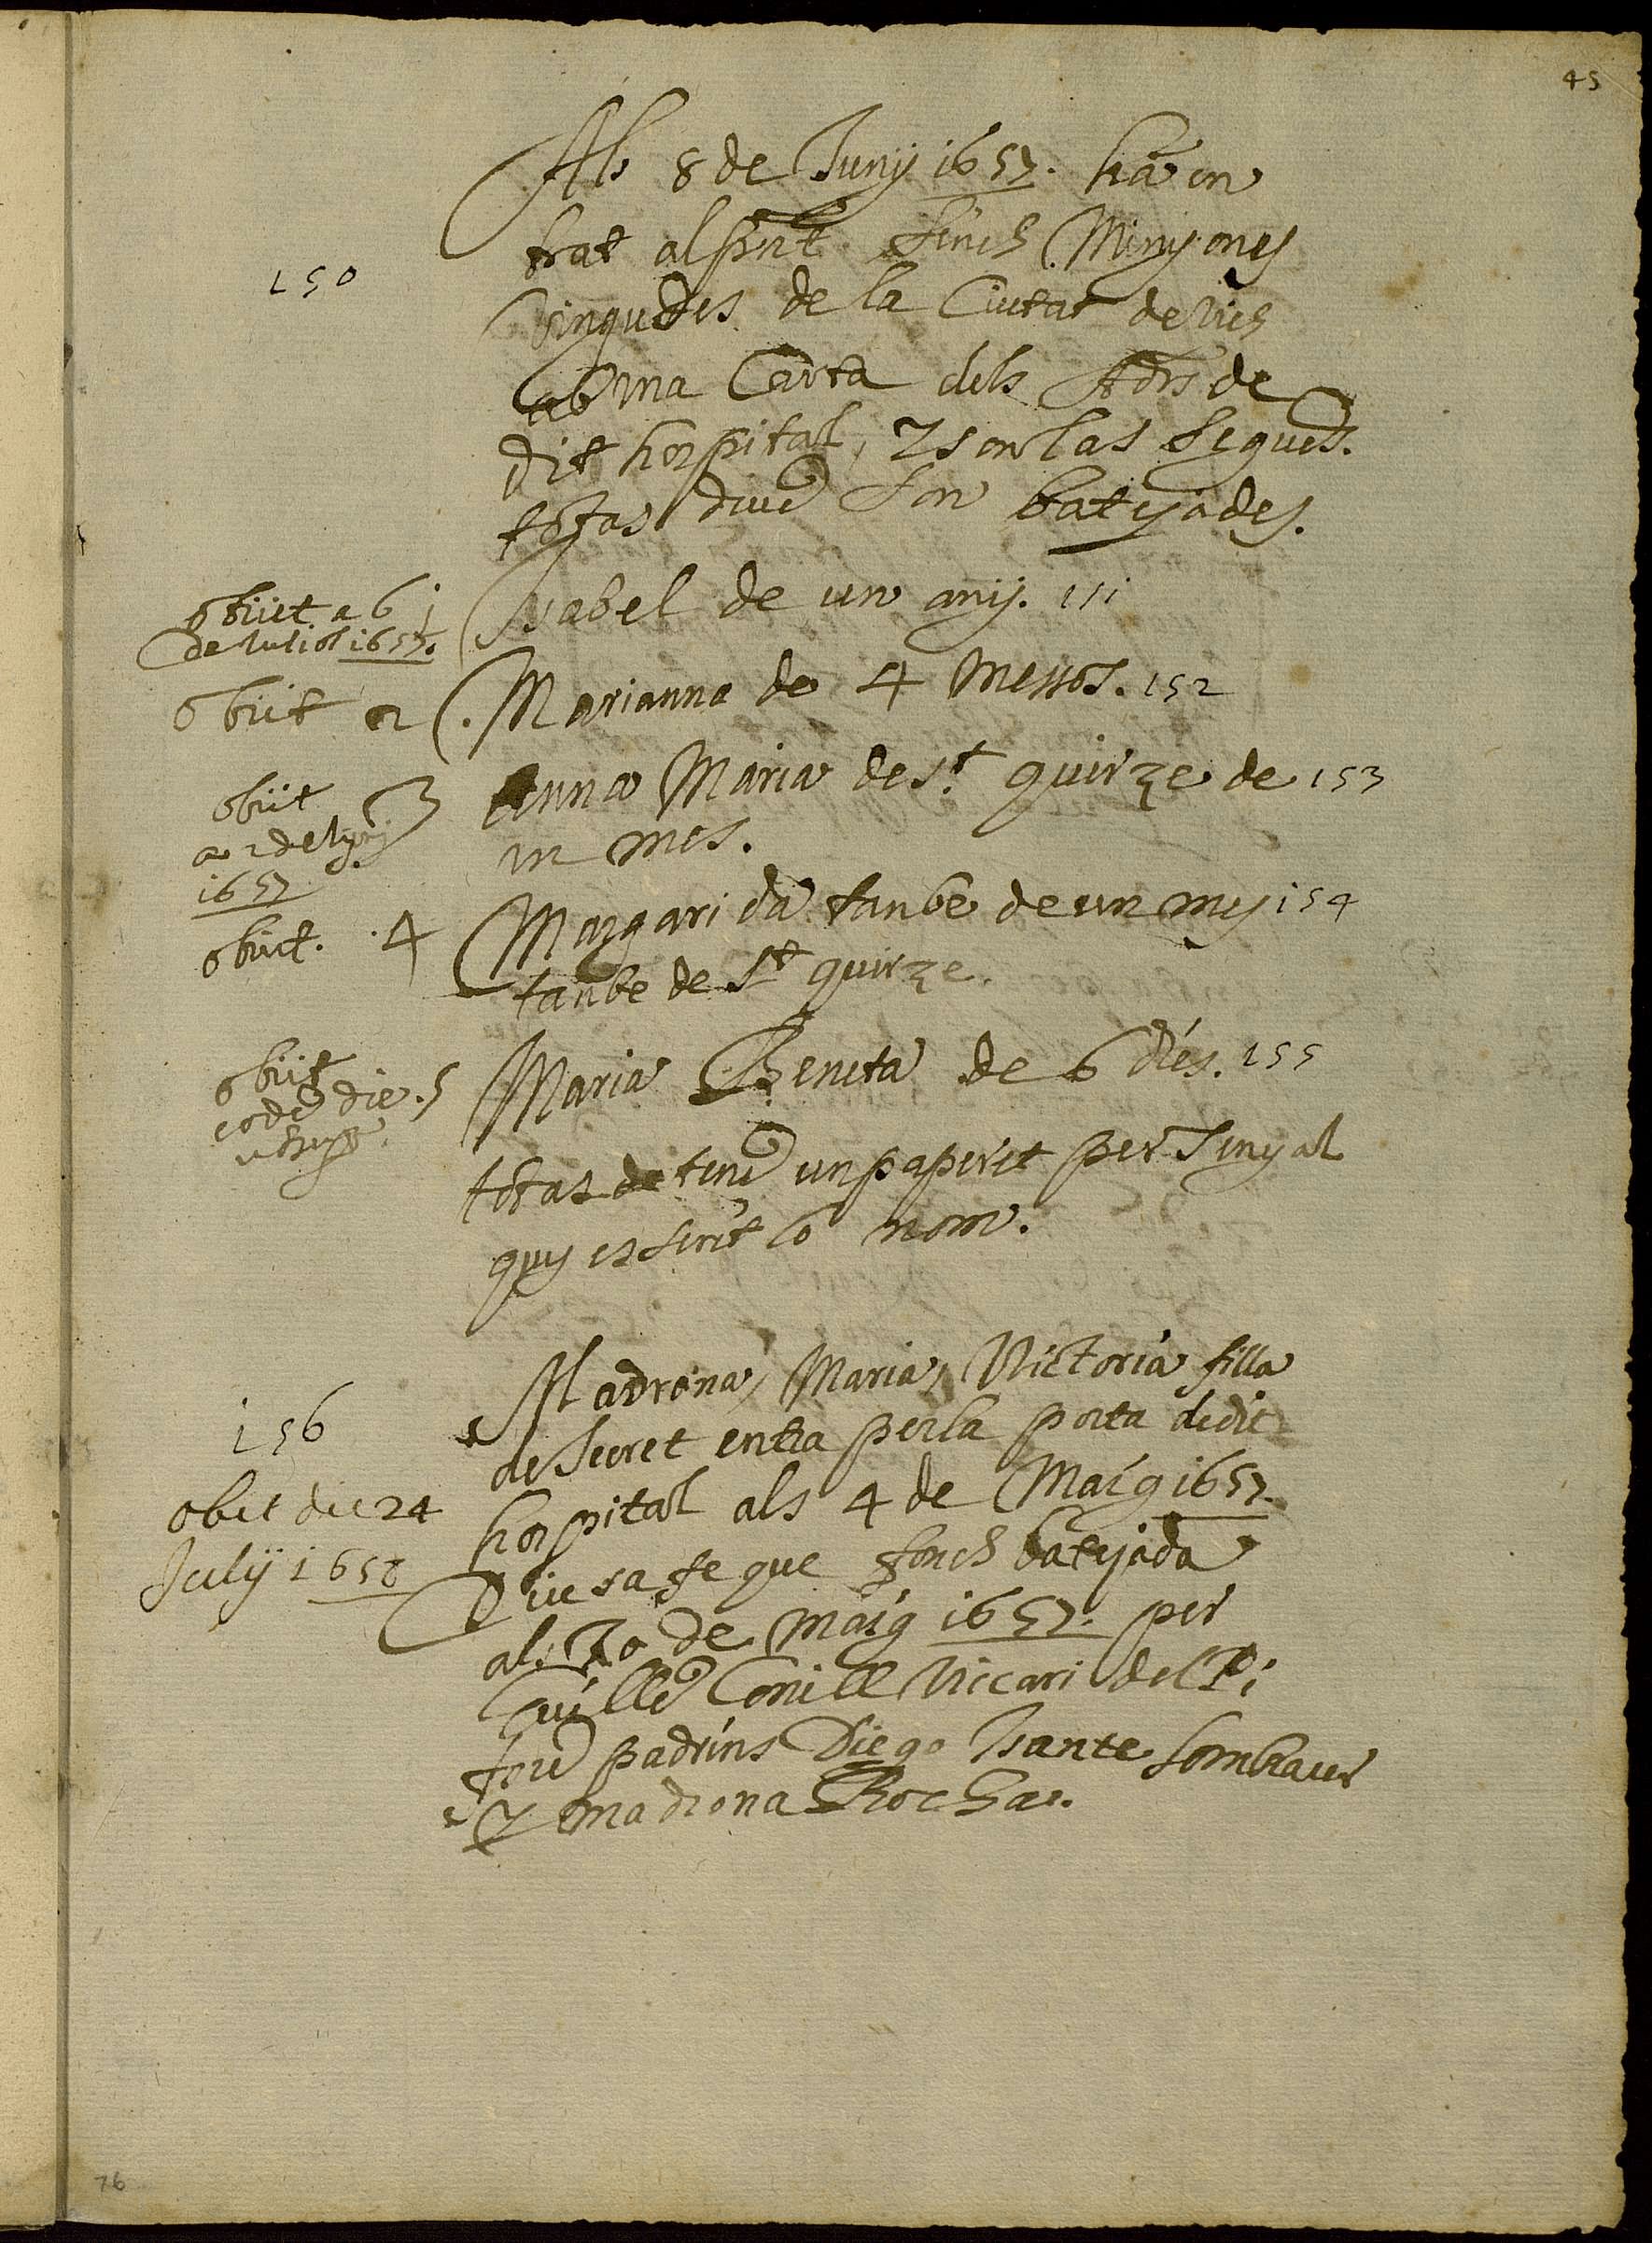 45
Als 8 de Juny 1657. ha en
trat al pnt sinch Minyones
150
vingudes de la Ciutat de Vich
ab vna Carta dels Adrs de
dit hospital, y son las seguēs.
totas diuē son bateyades.
obiit a 6
de Juliol 1657.
1 Ysabel de un any. 151
obiit 2 Marianna de 4 messos. 152
obiit 3
a 2 de
1657
Anna Maria de St. quirze de 153
vn mes.
obiit. 4
Margarida tanbe de un mes 154
tanbe de St quirze.
obiit
eodē die. 5
Maria Beneta de 6 dies. 155
totas tenē un paperet per senyal
quy es scrit lo nom.
Madrona, Maria, Victoria filla
156
de Secret entra per la porta de dit
obit die 24
July 1658
hospital als 4 de Maig 1657
Diu sa fe que fonch bateyada
als 30 de Maig 1657. per
Guillē Conill Viccari del Pi
forē padrins Diego Isante sombrarer
y madrona Rocha.
76